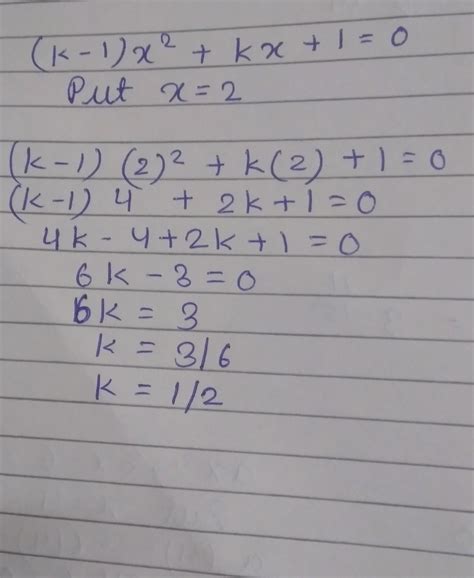 (k-1)x² + kx + 1 = 0
Put x = 2
(k-1) (2)² + k(2) + 1 = 0
(k-1) 4 + 2k + 1 = 0
4k - 4 + 2k + 1 = 0
6k - 3 = 0
6k = 3
k = 3/6
k = 1/2